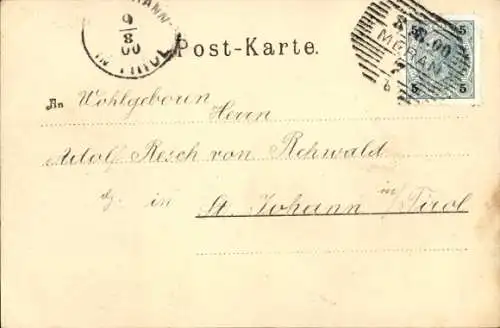 HANN
9
8
00
IN TIROL
Post-Karte.
8. 8. 00
MERAN
5 5
5 5
An Wohlgeboren
Herrn
Adolf Resch von Rehwald
dz. in St. Johann in/Tirol